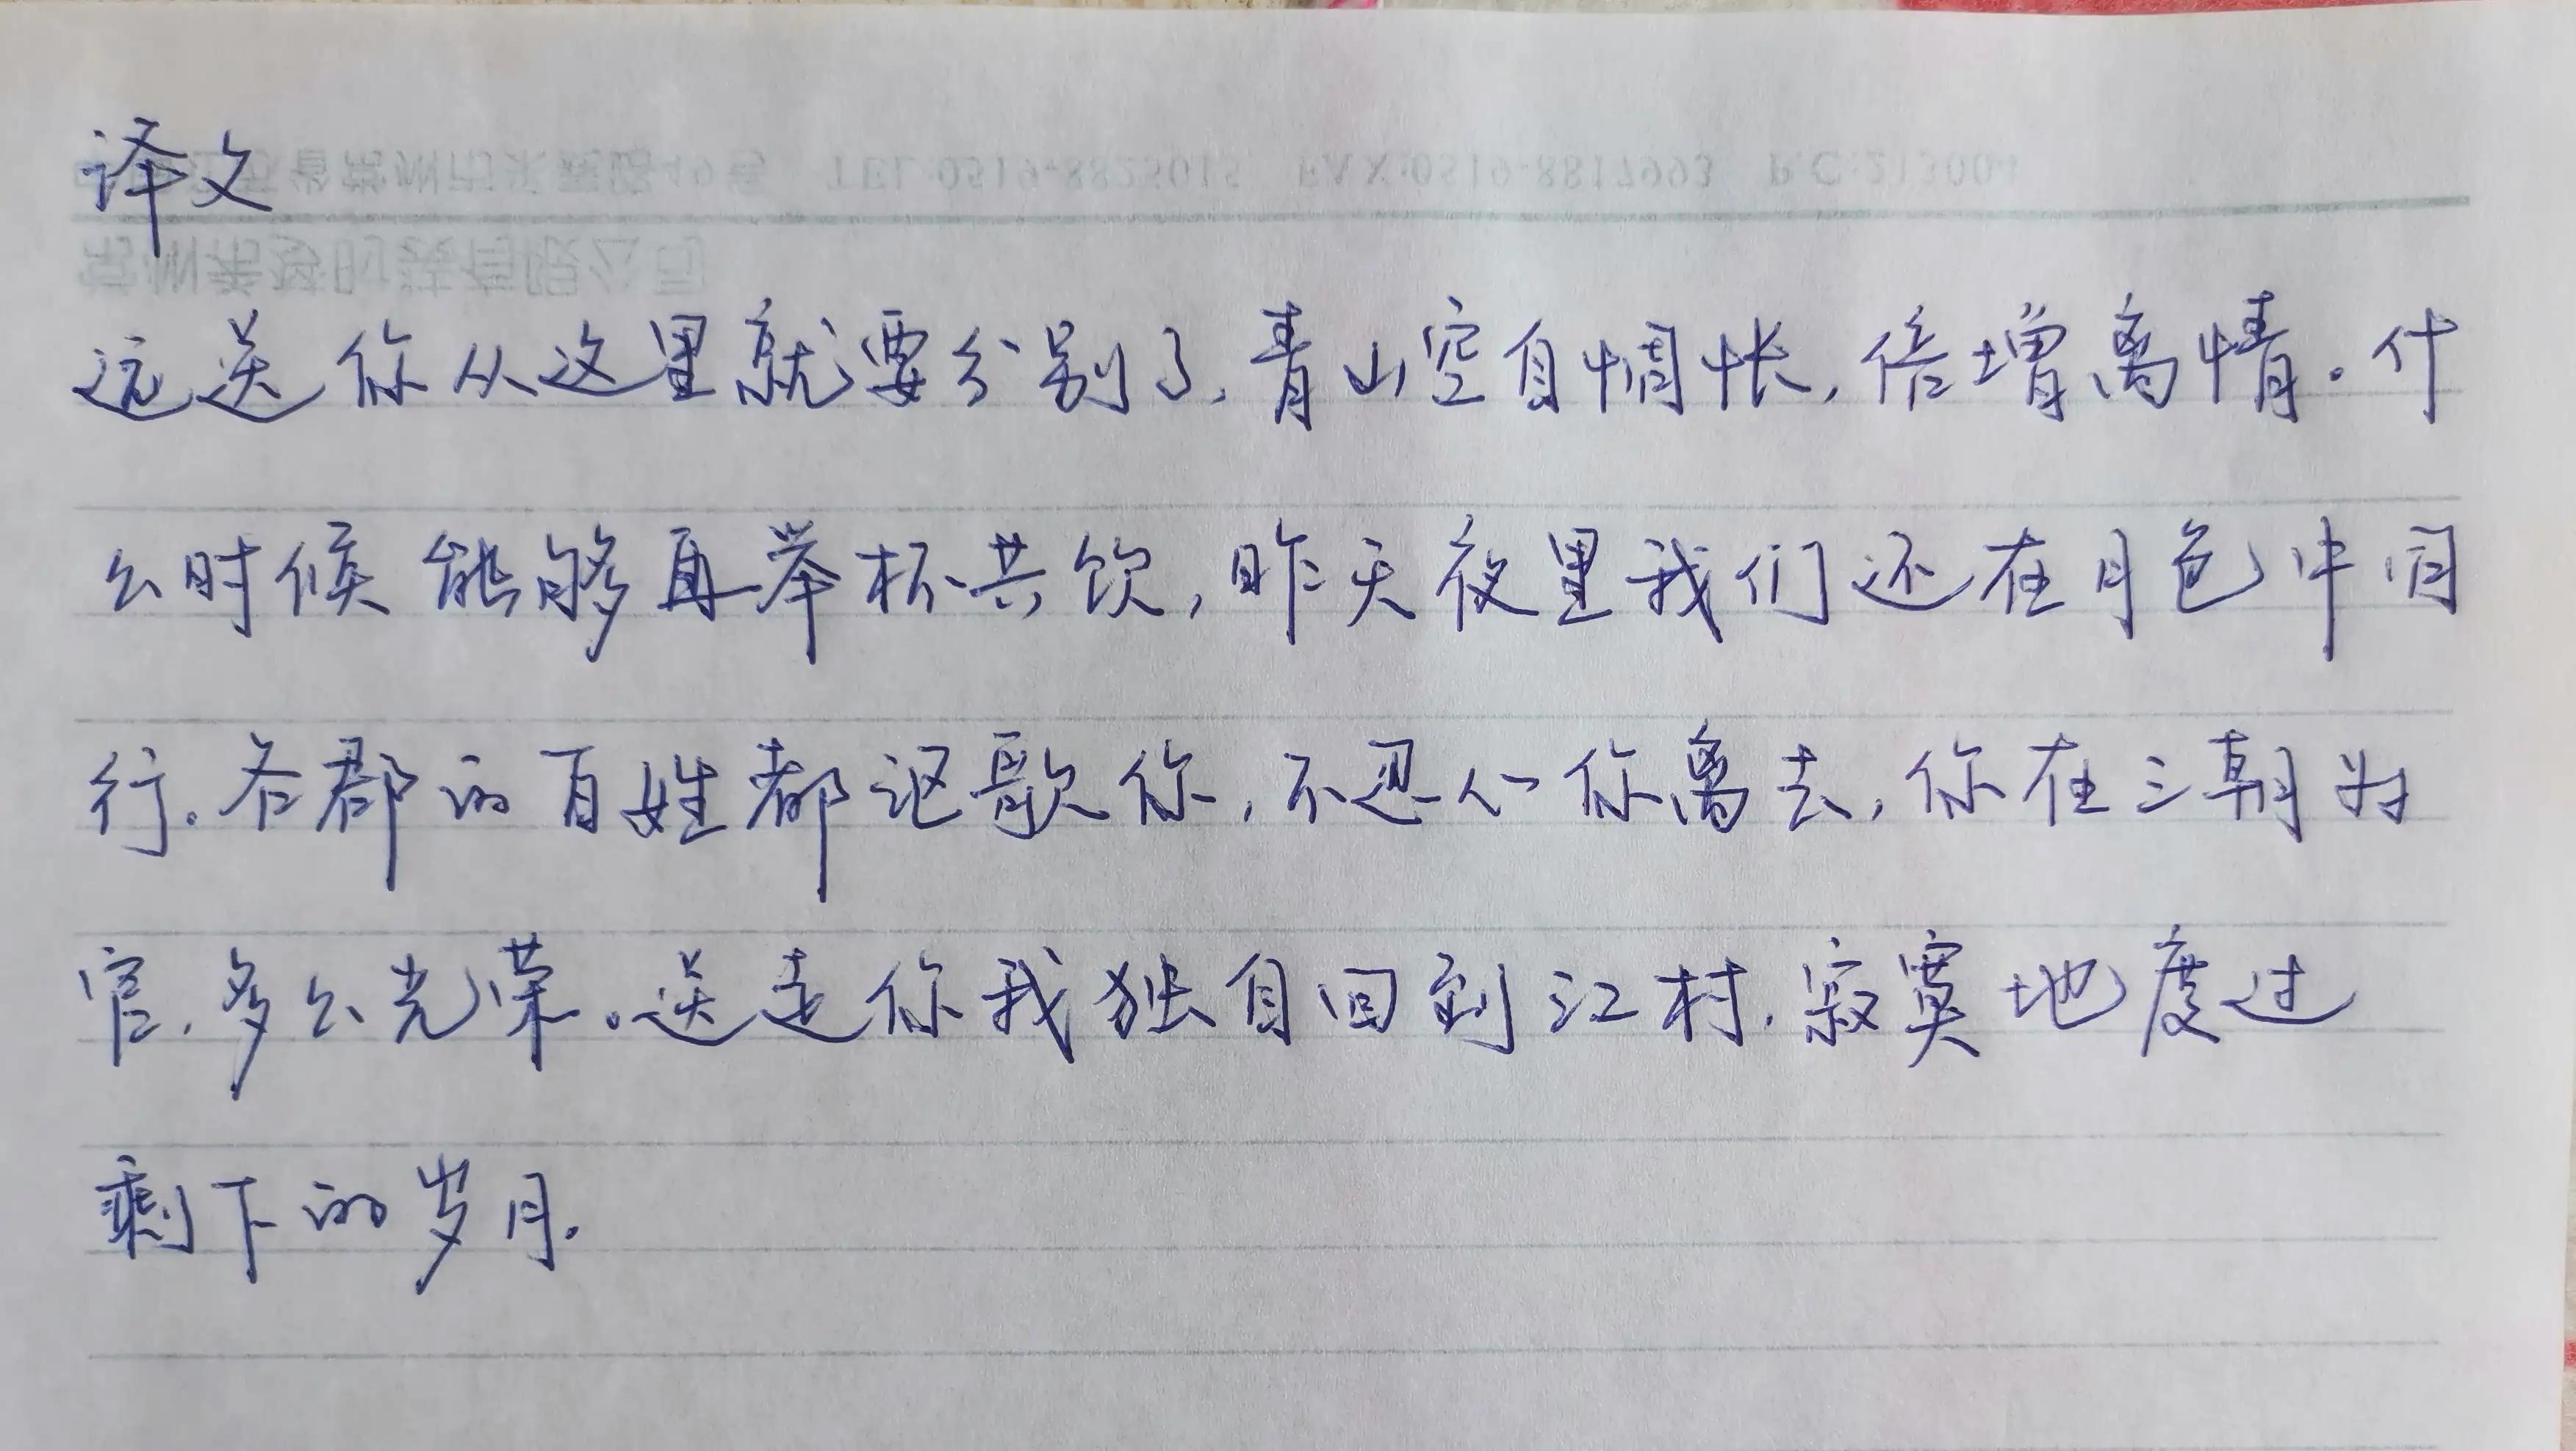 译文
远送你从这里就要分别了,青山空自惆怅,倍增离情。什
么时候能够再举杯共饮,昨天夜里我们还在月色中同
行.各郡的百姓都讴歌你,不忍心你离去,你在三朝为
官,多么光荣。送走你我独自回到江村,寂寞地度过
剩下的岁月.